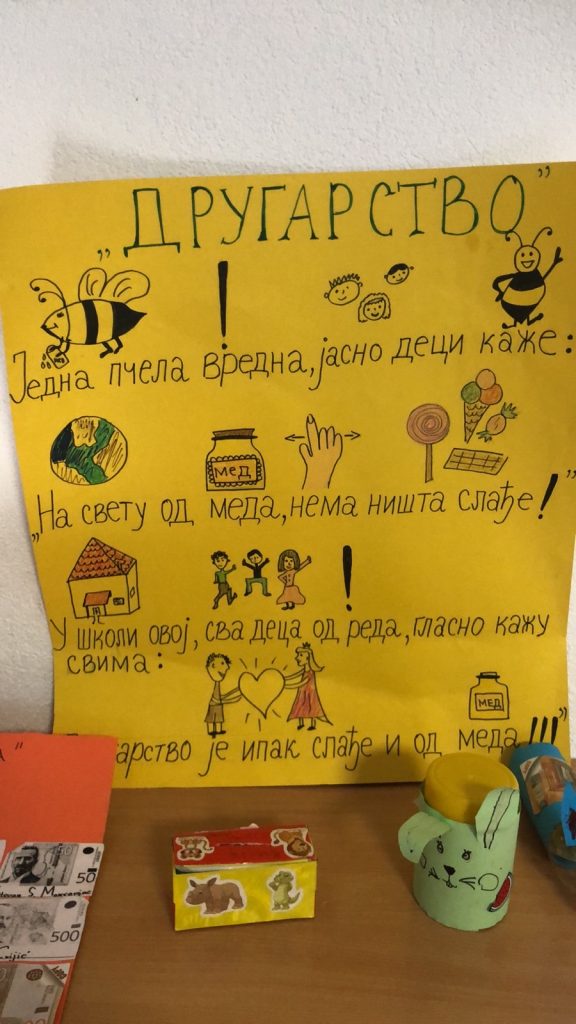 „ДРУГАРСТВО”
Једна пчела вредна, јасно деци каже:
МЕД
„На свету од меда, нема ништа слађе!”
У школи овој, сва деца од реда, гласно кажу
свима:
МЕД
је ипак слађе и од меда!!!”
50
500